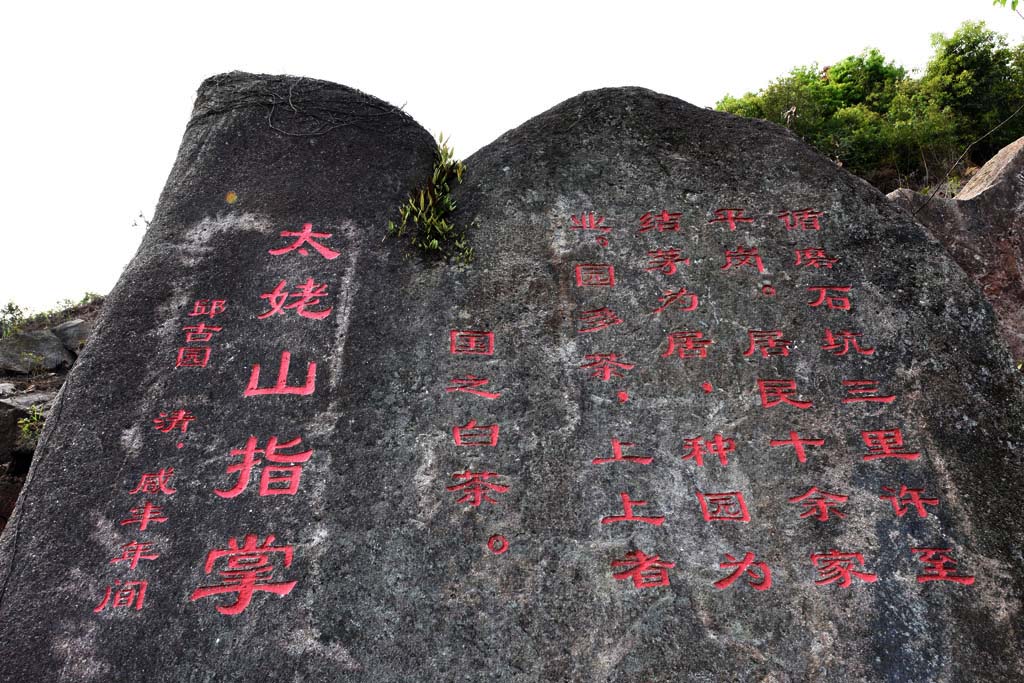 循磨石坑三里许至
平岗。居民十余家
结茅为居，种园为
业。园多茶，上上者
国之白茶。
太姥山指掌
邱古园 清，咸丰年间